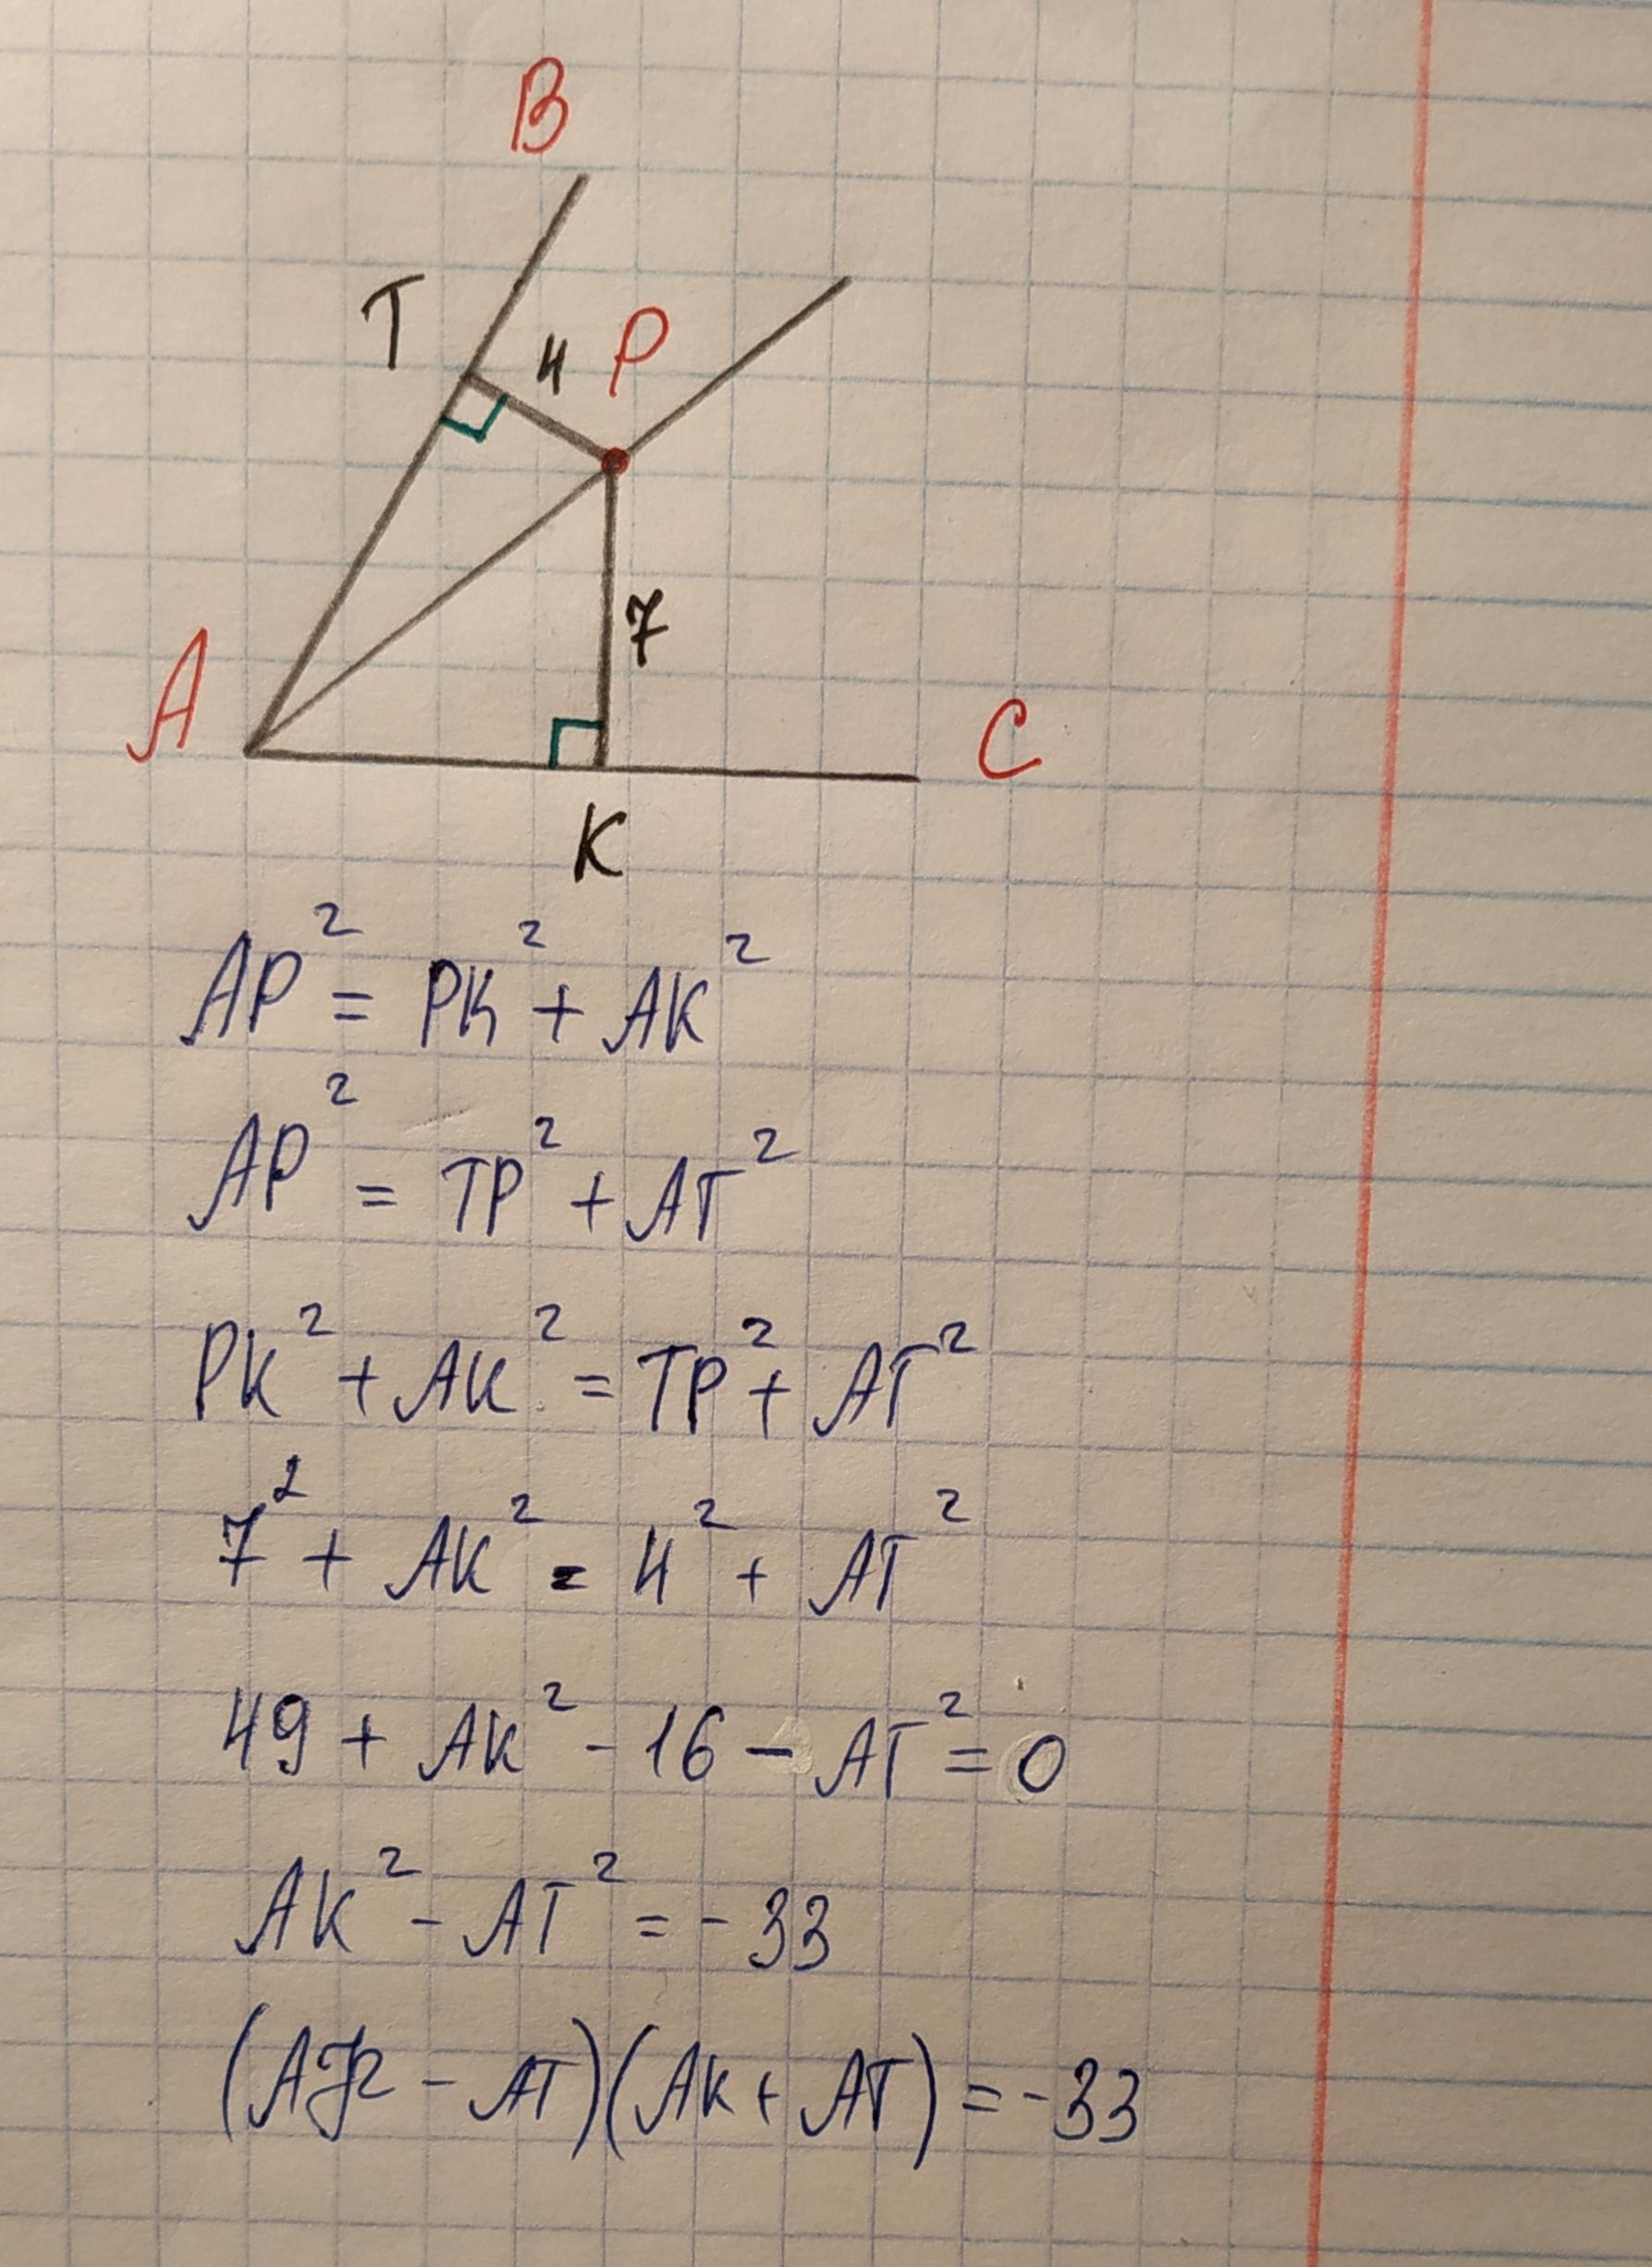 B
T
4
P
7
A
C
K
AP² = PK² + AK²
AP² = TP² + AT²
PK² + AK² = TP² + AT²
7² + AK² = 4² + AT²
49 + AK² - 16 - AT² = 0
AK² - AT² = -33
(AK - AT)(AK + AT) = -33